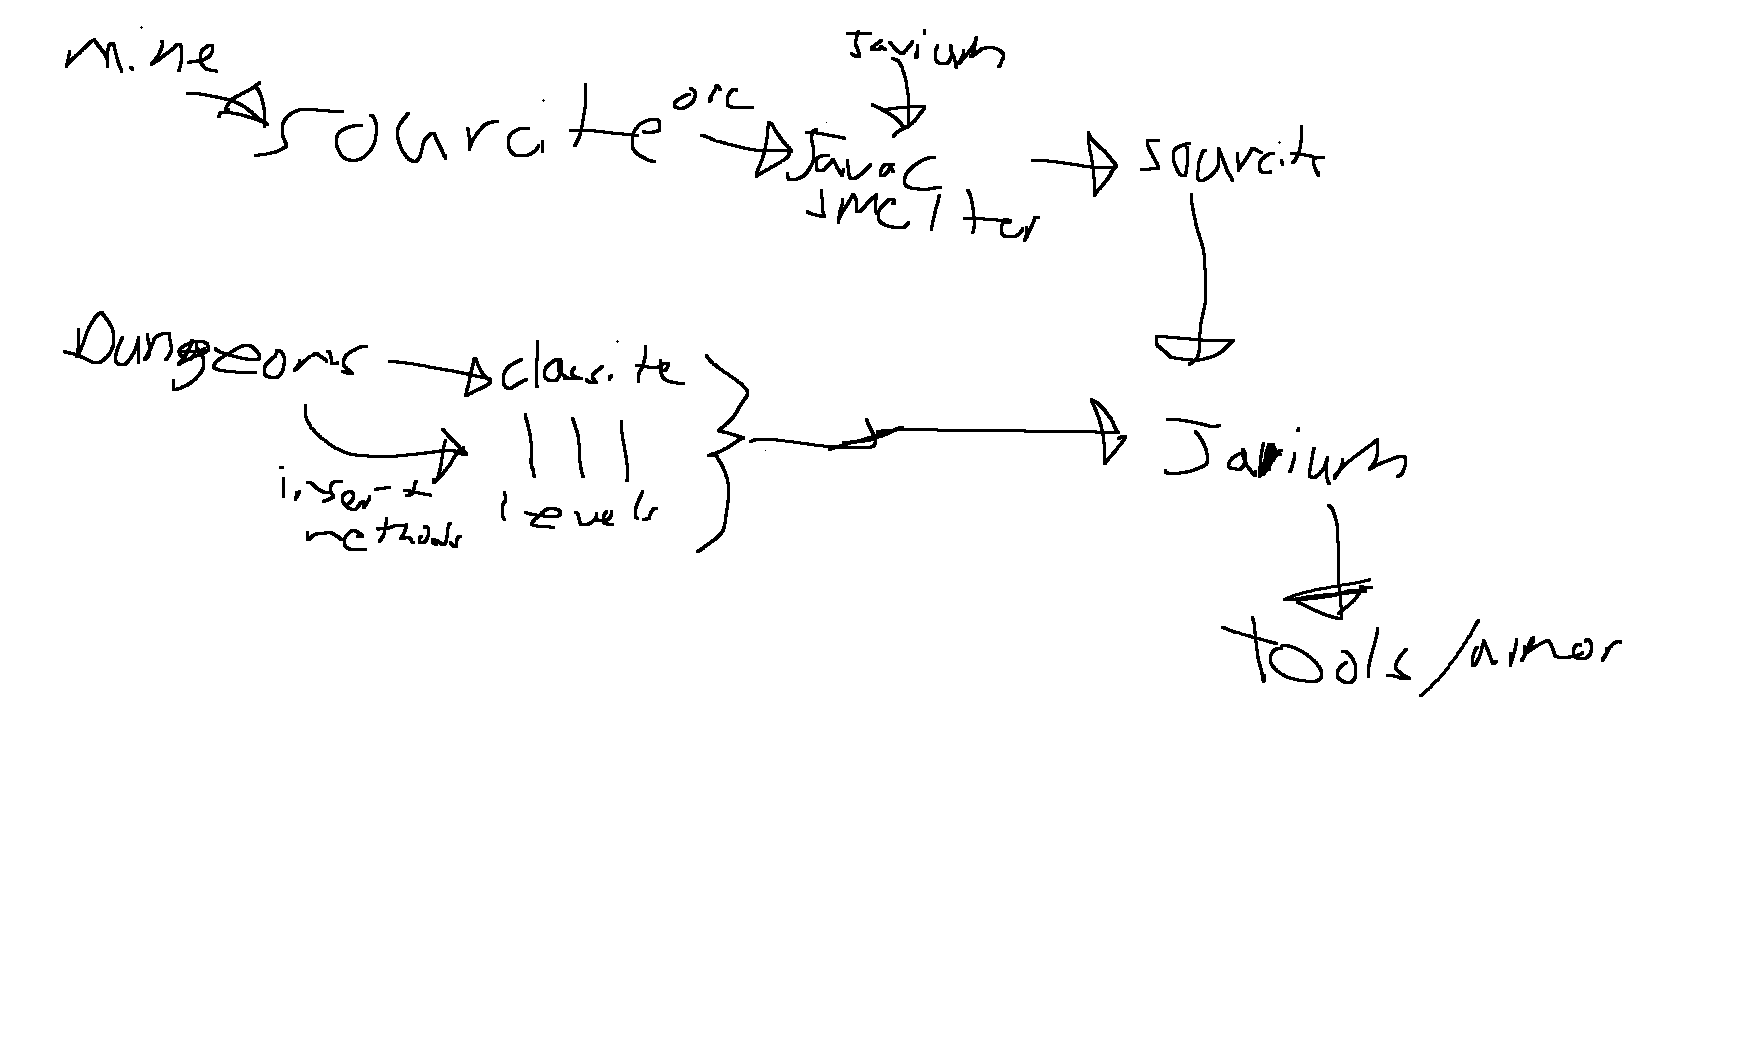 Mine
Javium
Sourcite ore
Javac
smelter
sourcite
Dungeons
classite
insert
methods
levels
Javium
tools/armor